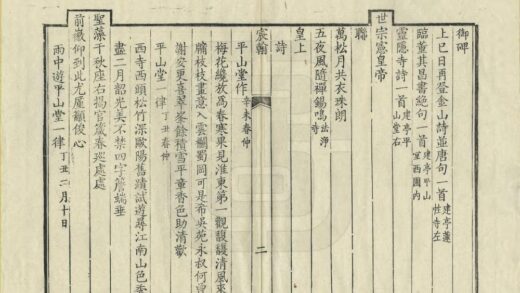 御碑
上巳日再登金山詩並唐句一首 建亭蓮性寺左
臨董其昌書絕句一首 建亭平山堂西園内
靈隱寺詩一首 建亭平山堂右
世宗憲皇帝
聯
萬松月共衣珠朗
五夜風隨禪錫鳴 法淨寺
皇上
詩
宸翰
二
平山堂作 辛未春仲
梅花纔放為春寒果見淮東第一觀馥馥清風來
牖枝枝畫意入雲巒蜀岡可是希吳苑永叔何曾
謝安更喜翠峯餘積雪平章香色助清歡
平山堂一律 丁丑春仲
西寺西頭松竹深歐陽舊蹟試遊尋江南山色
盡二月韶光美不禁四字簷端垂
聖藻千秋座右揭官箴春巡處處
前徽仰到此尤厪顧俊心
雨中遊平山堂一律 丁丑二月十日